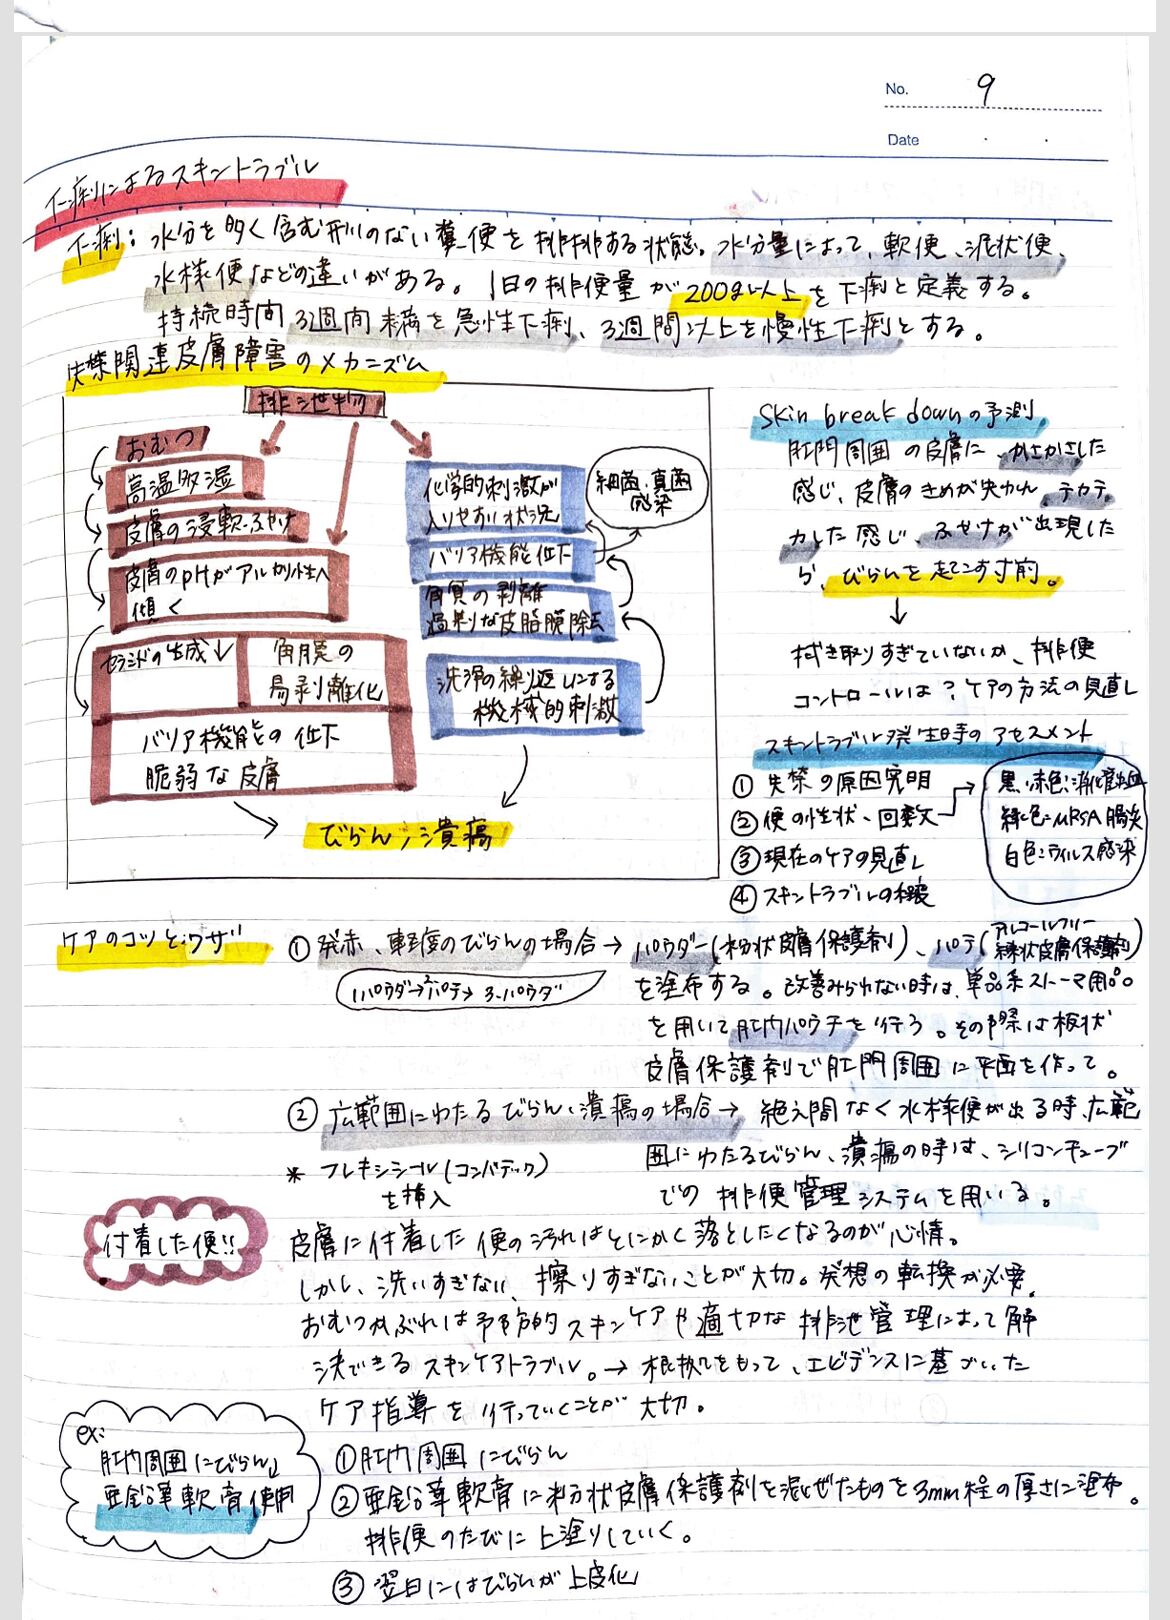 No. 9
Date
下痢によるスキントラブル
下痢: 水分を多く含む形のない糞便を排排する状態。水分量によって、軟便、泥状便、
水様便などの違いがある。1日の排便量が200g以上を下痢と定義する。
持続時間3週間未満を急性下痢、3週間以上を慢性下痢とする。
失禁関連皮膚障害のメカニズム
排泄物
おむつ
高温多湿
皮膚の浸軟・ふやけ
皮膚のpHがアルカリ性へ
傾く
セラミドの生成↓
角質の
易剥離化
バリア機能の低下
脆弱な皮膚
化学的刺激が
入りやすい状況
細菌・真菌
感染
バリア機能低下
角質の剥離
過剰な皮脂膜除去
洗浄の繰り返しによる
機械的刺激
びらん、潰瘍
Skin break downの予測
肛門周囲の皮膚に、かさかさした
感じ、皮膚のきめが失われ、テカテ
カした感じ、ふやけが出現した
ら、びらんを起こす寸前。
↓
拭き取りすぎていないか、排便
コントロールは?ケアの方法の見直し
スキントラブル発生時のアセスメント
① 失禁の原因究明
② 便の性状、回数
③ 現在のケアの見直し
④ スキントラブルの程度
黒・赤色:消化管出血
緑色:MRSA腸炎
白色:ウイルス感染
ケアのコツとワザ
① 発赤、軽度のびらんの場合→パウダー(粉状皮膚保護剤)、パテ(アルコールフリー練状皮膚保護剤)
1パウダー→2パテ→3パウダー
を塗布する。改善みられない時は、単品系ストーマ用品
を用いて肛門パウチを行う。その際は板状
皮膚保護剤で肛門周囲に平面を作って。
② 広範囲にわたるびらん、潰瘍の場合→絶え間なく水様便が出る時、広範
囲にわたるびらん、潰瘍の時は、シリコンチューブ
での排便管理システムを用いる。
* フレキシシール(コンバテック)
を挿入
付着した便!!
皮膚に付着した便の汚れはとにかく落としたくなるのが心情。
しかし、洗いすぎない、擦りすぎないことが大切。発想の転換が必要。
おむつかぶれは予防的スキンケアや適切な排泄管理によって解
決できるスキンケアトラブル。→根拠をもって、エビデンスに基づいた
ケア指導を行っていくことが大切。
ex:
肛門周囲にびらん」
亜鉛華軟膏使用
① 肛門周囲にびらん
② 亜鉛華軟膏に粉状皮膚保護剤を混ぜたものを3mm程の厚さに塗布。
排便のたびに上塗りしていく。
③ 翌日にはびらんが上皮化